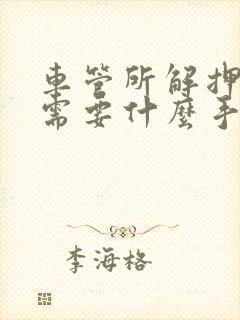 車管所解押
需要什麼手
李海格